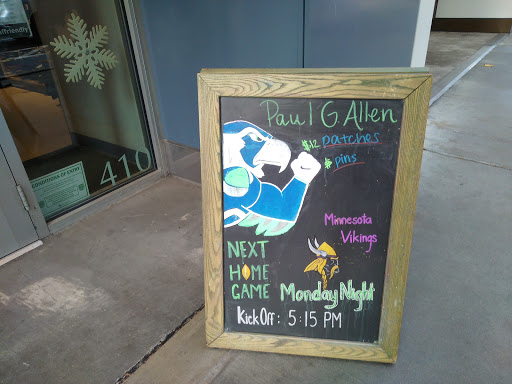 friendly
CONDITIONS OF ENTRY
410
Paul G Allen
$12 patches
$ pins
Minnesota
Vikings
NEXT
HOME
GAME
Monday Night
Kick Off: 5:15 PM